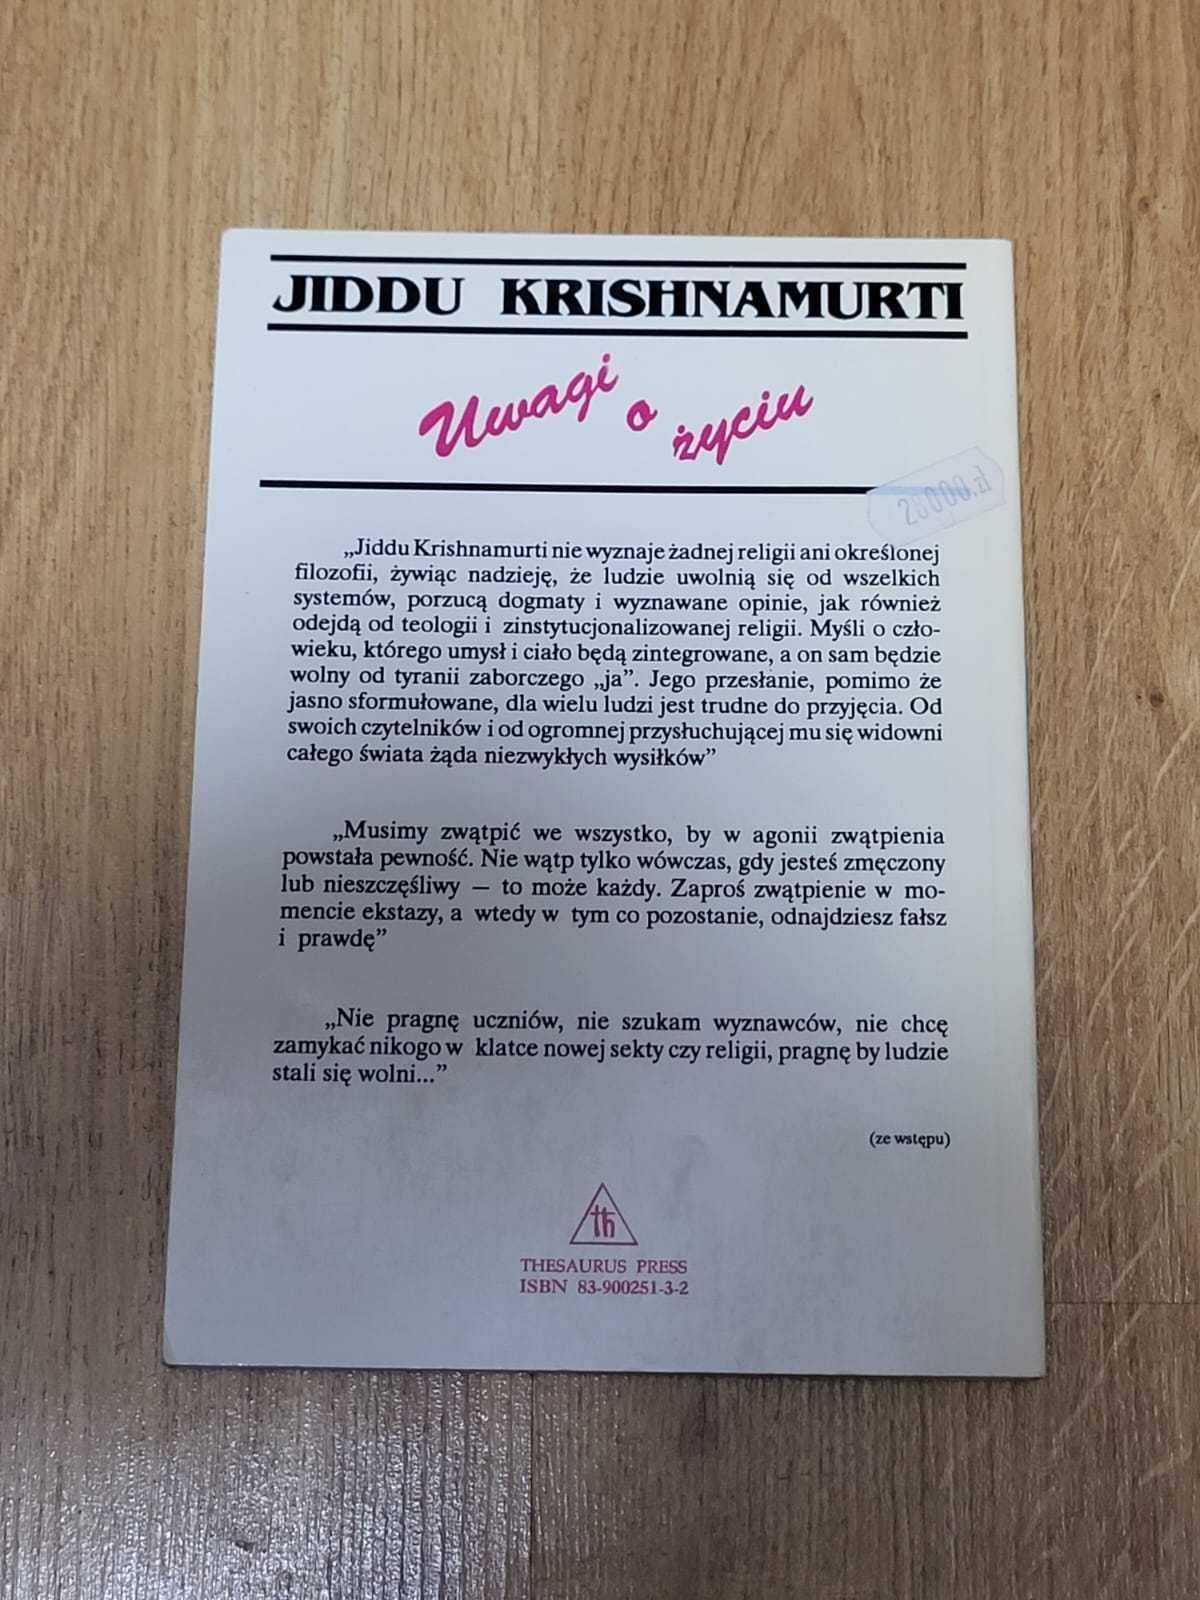 JIDDU KRISHNAMURTI
Uwagi o życiu
28000.zł
„Jiddu Krishnamurti nie wyznaje żadnej religii ani określonej
filozofii, żywiąc nadzieję, że ludzie uwolnią się od wszelkich
systemów, porzucą dogmaty i wyznawane opinie, jak również
odejdą od teologii i zinstytucjonalizowanej religii. Myśli o czło-
wieku, którego umysł i ciało będą zintegrowane, a on sam będzie
wolny od tyranii zaborczego „ja”. Jego przesłanie, pomimo że
jasno sformułowane, dla wielu ludzi jest trudne do przyjęcia. Od
swoich czytelników i od ogromnej przysłuchującej mu się widowni
całego świata żąda niezwykłych wysiłków”
„Musimy zwątpić we wszystko, by w agonii zwątpienia
powstała pewność. Nie wątp tylko wówczas, gdy jesteś zmęczony
lub nieszczęśliwy — to może każdy. Zaproś zwątpienie w mo-
mencie ekstazy, a wtedy w tym co pozostanie, odnajdziesz fałsz
i prawdę”
„Nie pragnę uczniów, nie szukam wyznawców, nie chcę
zamykać nikogo w klatce nowej sekty czy religii, pragnę by ludzie
stali się wolni...”
(ze wstępu)
th
THESAURUS PRESS
ISBN 83-900251-3-2